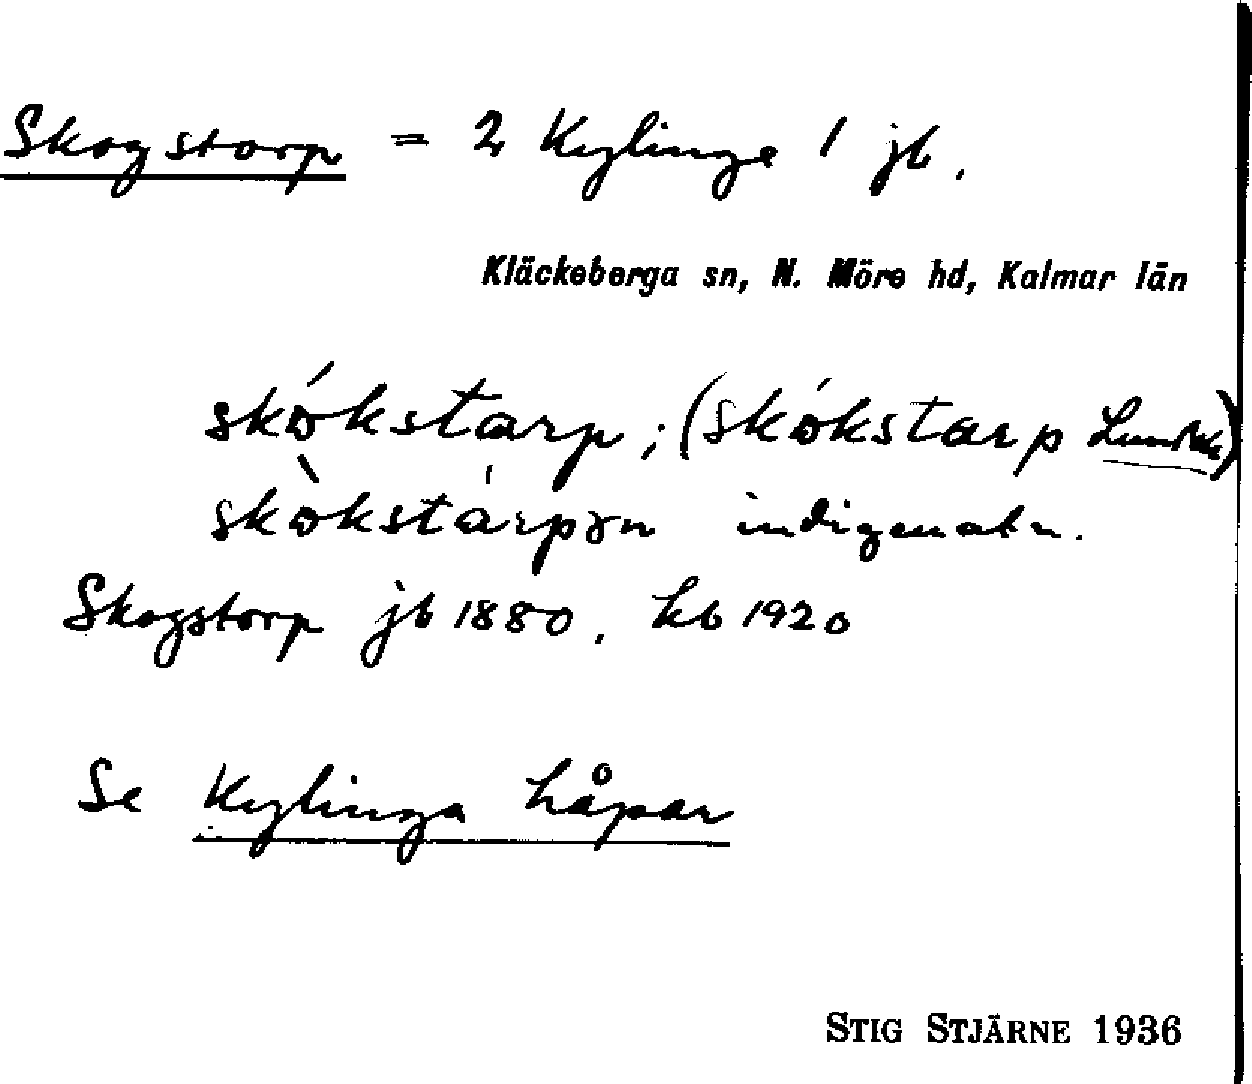 Skogstorp = 2 Kylinge 1 jb.
Kläckeberga sn, N. Möre hd, Kalmar län
skókstarp; (skókstarp
skòkstárpən indigenatn.
Skogstorp jb 1880, kb 1920
Se Kylinga håpar
STIG STJÄRNE 1936